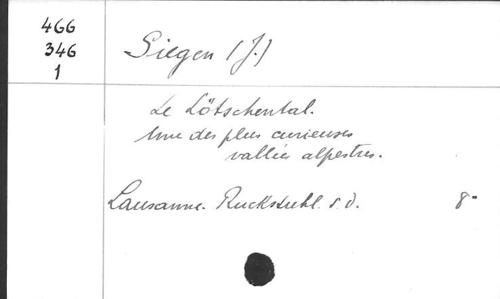 466
346
1
Siegen (J.)
Le Lötschental.
Une des plus curieuses
vallées alpestres.
Lausanne. Ruckstuhl. s.d.
8°